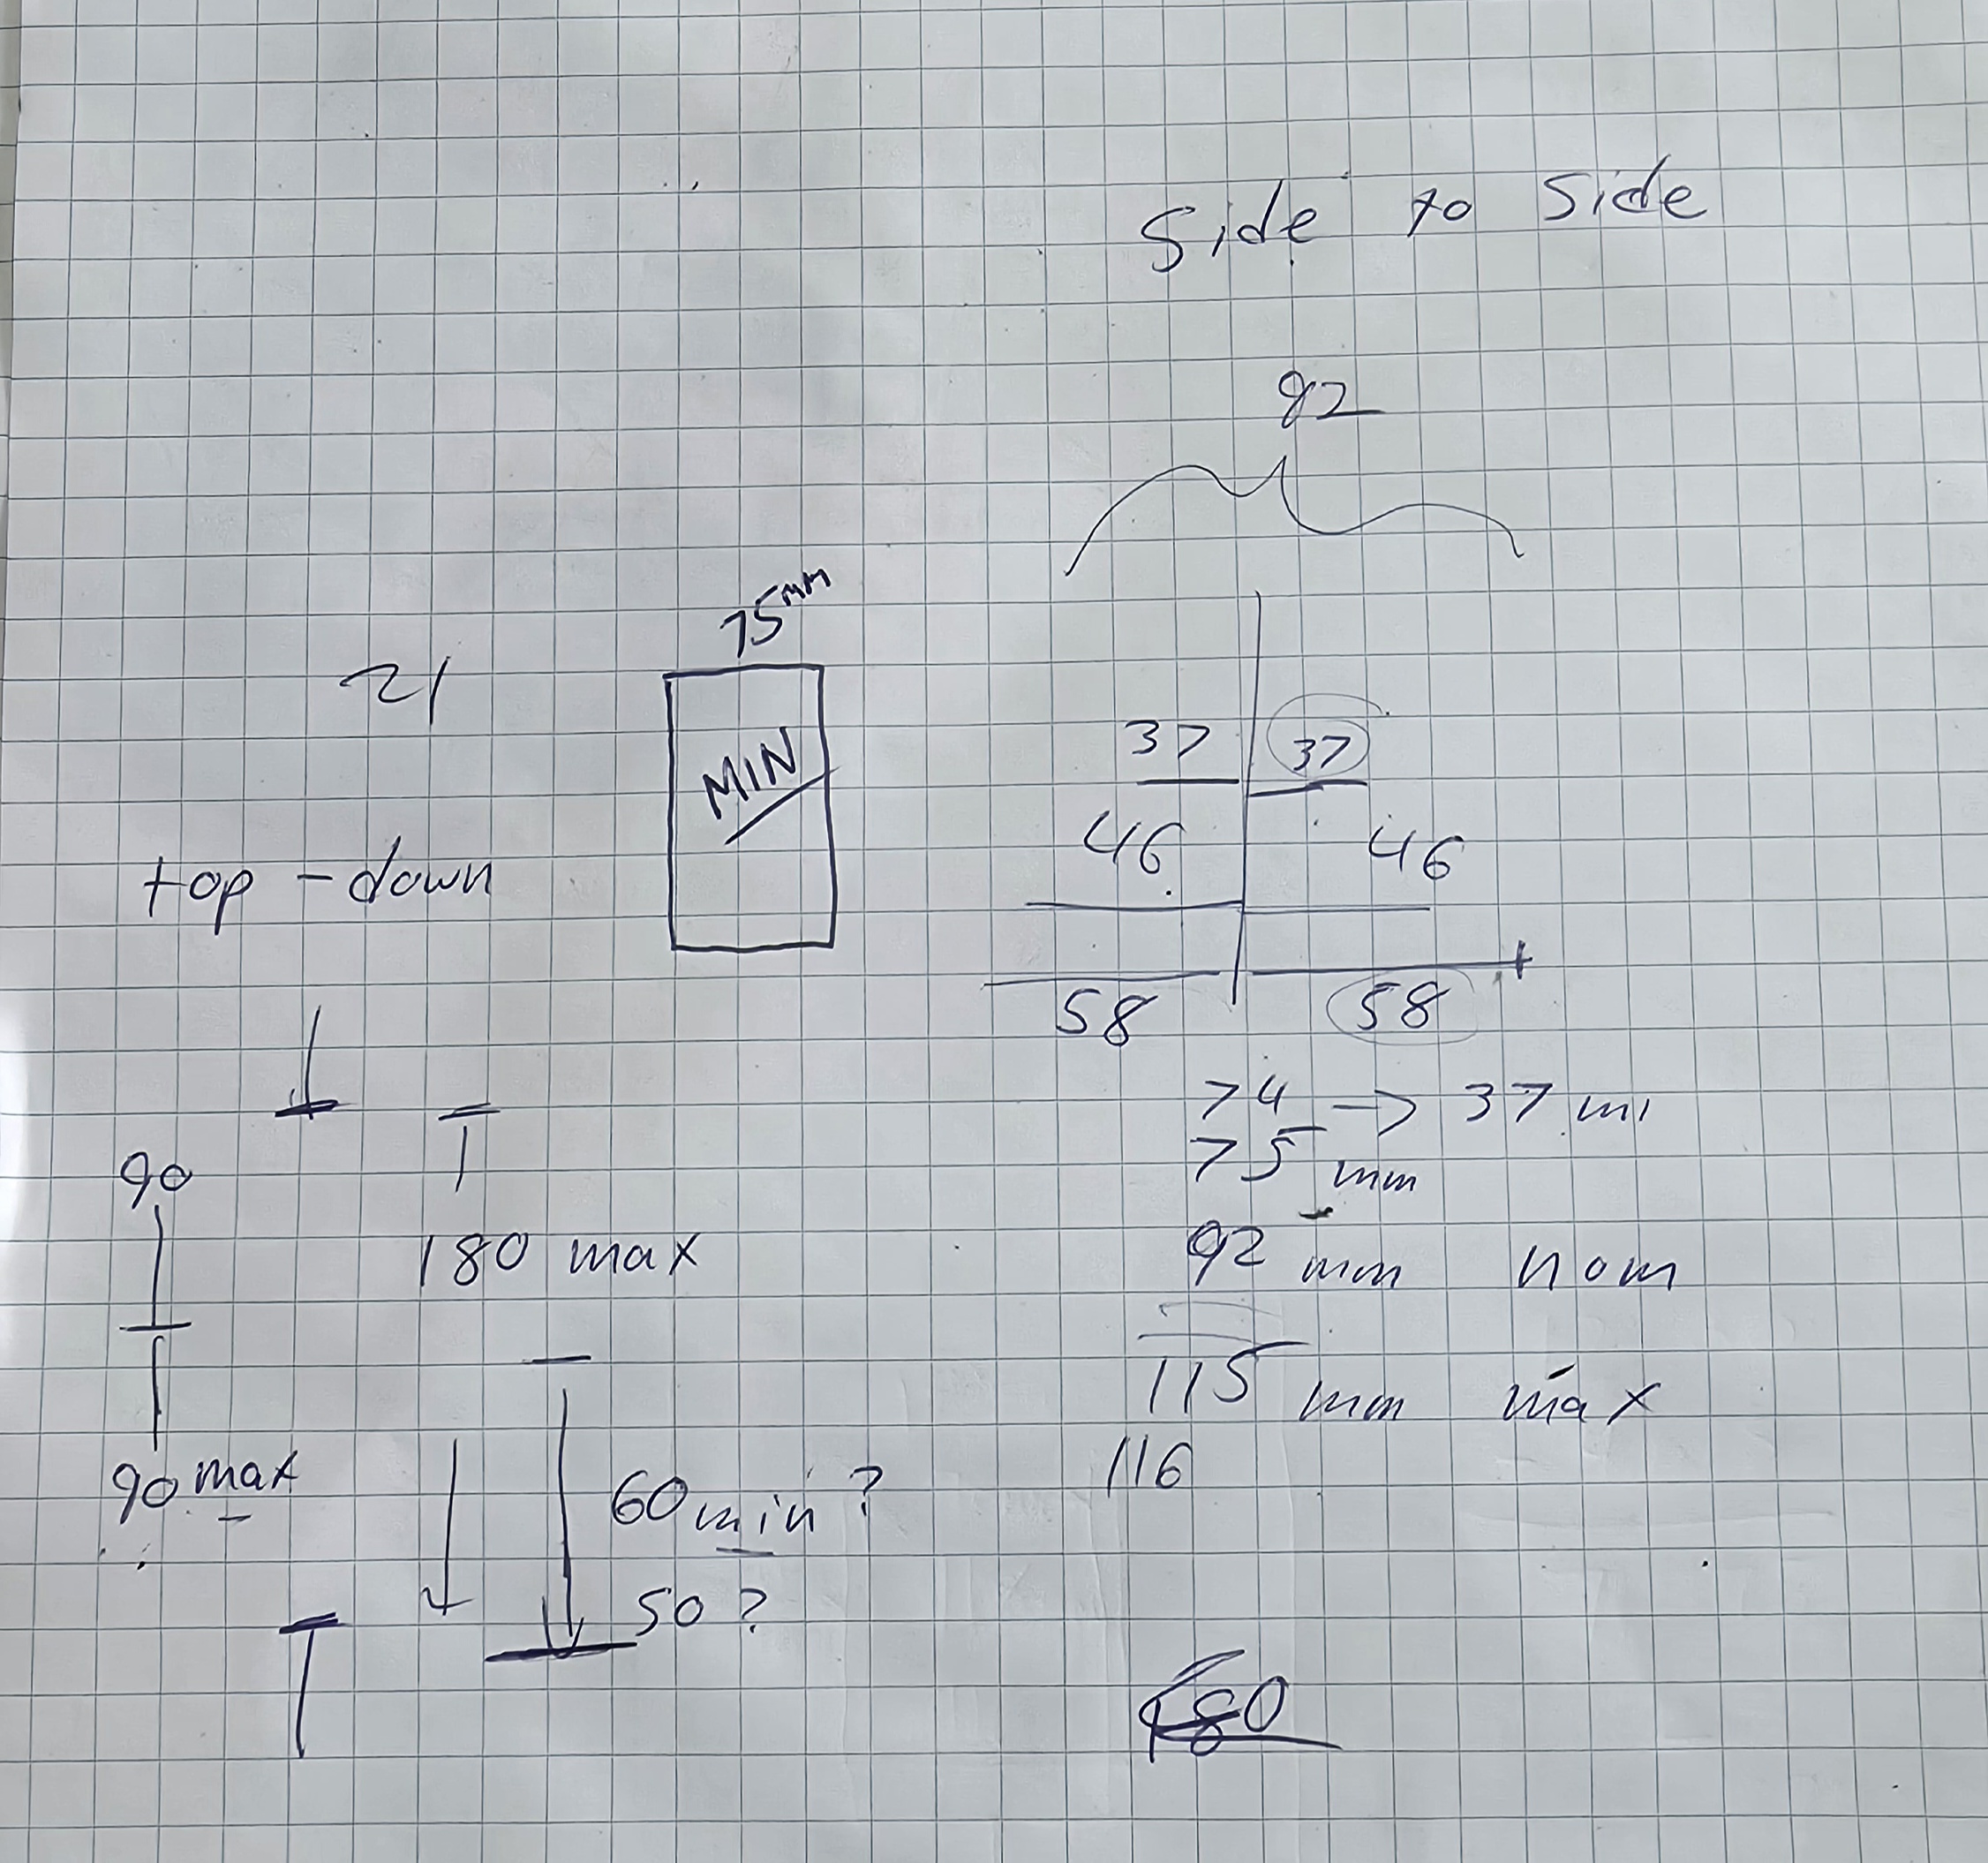 Side to Side
92
75mm
21
MIN
37 37
46 46
top-down
58 58
74 → 37 mm
75 mm
90
92 mm nom
180 max
115 mm max
116
90 max
60 min?
50?